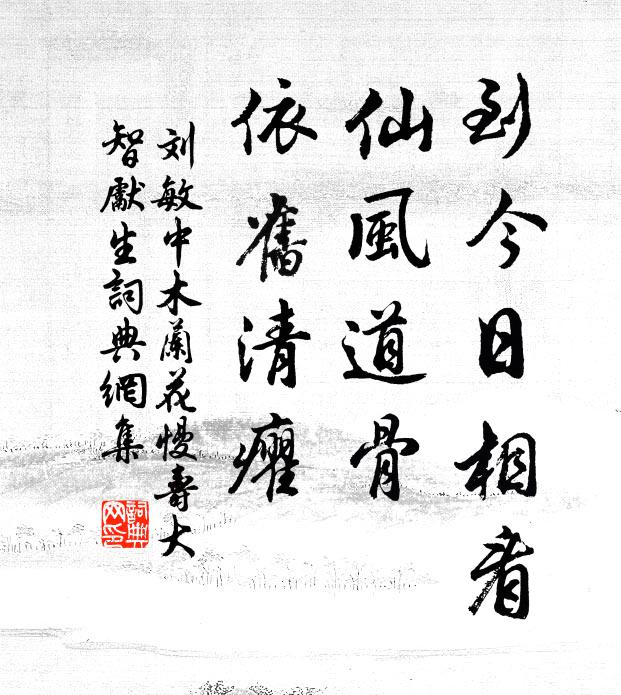 到今日相看
仙風道骨
依舊清癯
刘敏中木蘭花慢壽大
智獻生詞典網集
詞典
网印